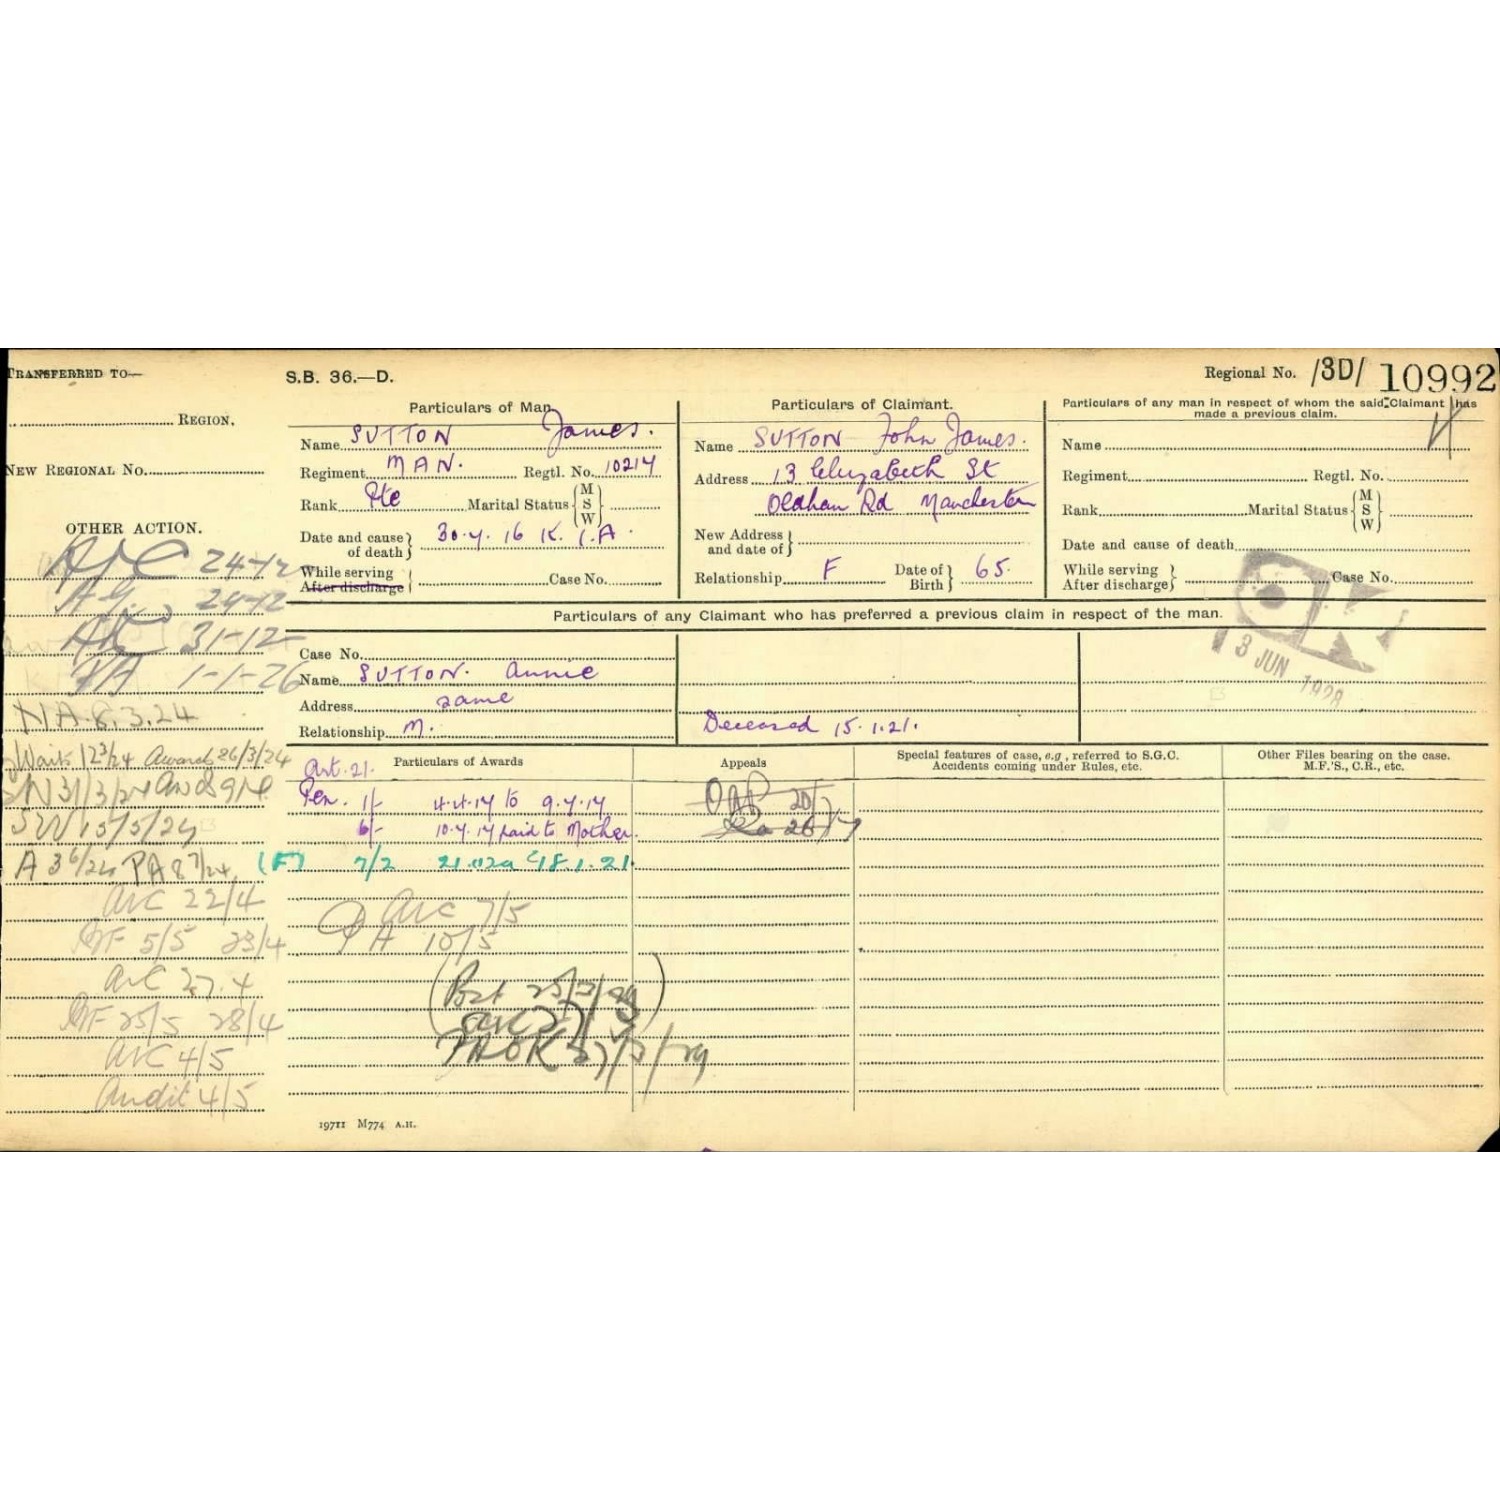 TRANSFERRED TO—
REGION,
NEW REGIONAL NO.
OTHER ACTION.
24-12
29-12
31-12-
1-1-26
N.A. 8.3.24
Waits 12 3/24 Awards 26/3/24
31/3/24
SW 15/5/24
A 3 6/24 PA 8 7/24
ArC 22/4
BF 5/5 23/4
ArC 27.4
BF 25/5 28/4
ArC 4/5
Audit 4/5
S.B. 36.—D.
Regional No. /3D/ 10992
Particulars of Man.
Name SUTTON James.
Regiment MAN. Regtl. No. 10217
Rank Pte Marital Status { M S W }
Date and cause of death } 30.7.16 K.I.A.
While serving
After discharge } Case No.
Particulars of Claimant.
Name SUTTON John James.
Address 13 Elizabeth St
Oldham Rd Manchester
New Address and date of }
Relationship F Date of Birth } 65.
Particulars of any man in respect of whom the said Claimant has made a previous claim.
Name
Regiment Regtl. No.
Rank Marital Status { M S W }
Date and cause of death
While serving
After discharge } Case No.
3 JUN 1928
Particulars of any Claimant who has preferred a previous claim in respect of the man.
Case No.
Name SUTTON. Annie
Address same
Relationship M.
Deceased 15.1.21.
Particulars of Awards
Art. 21.
Pen. 1/- 4.4.17 to 9.7.17
6/- 10.7.17 paid to Mother.
(F) 7/2 18.1.21
ArC 7/5
PA 10/5
27/3/29
Appeals
Special features of case, e.g., referred to S.G.C. Accidents coming under Rules, etc.
Other Files bearing on the case. M.F.'S., C.R., etc.
19711 M774 A.H.